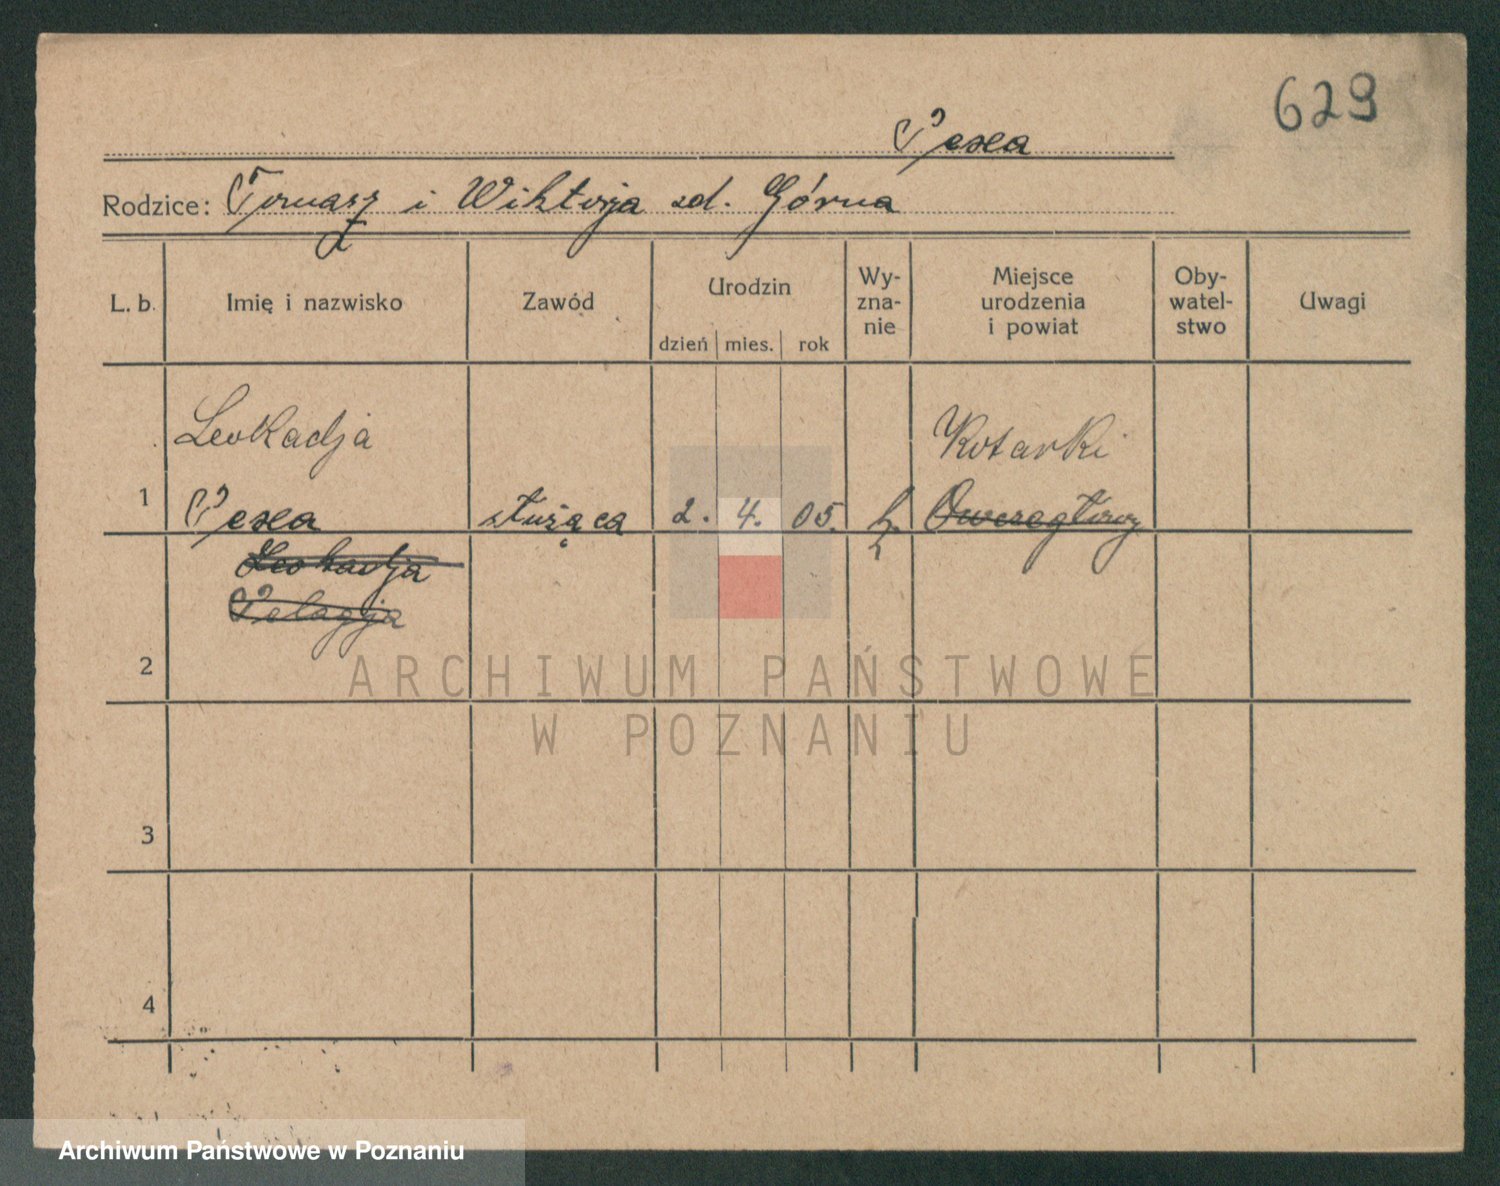 629
Pexa
Rodzice: Tomasz i Wiktorja zd. Górna
L. b. Imię i nazwisko Zawód Urodzin dzień mies. rok Wy-zna-nie Miejsce urodzenia i powiat Oby-watel-stwo Uwagi
Leokadja Kotarki
1 Pexa służąca 2. 4. 05. k. Owczegłowy
Leokadja
Pelagja
2
ARCHIWUM PAŃSTWOWE
W POZNANIU
3
4
Archiwum Państwowe w Poznaniu